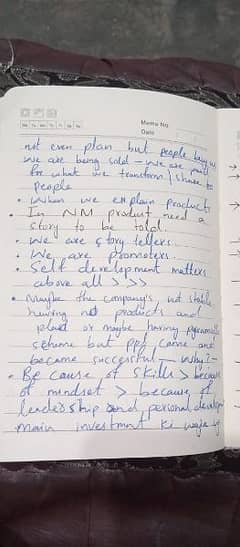 Memo No.
Date
Mo Tu We Th Fr Sa Su
not even plan but people buy us
we are being sold – we are paid
for what we transform / share to
people
• When we explain products
• In NM product need a
story to be told.
• We are story tellers.
• We are promoters.
• Self development matters
above all >>>
• Maybe the company's not stable
having no products and
plan or maybe having pyramid
scheme but ppl came and
became successful – why? –
• Be cause of skills > because
of mindset > because of
leadership and personal develop
main investment ki waja